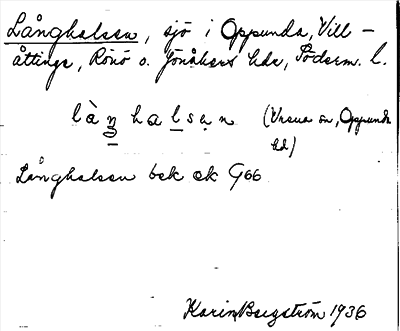 Långhalsen, sjö i Oppunda, Vill-
åttinge, Rönö o. Jönåkers hdr, Söderm. l.
lànhalsen (Vrena sn, Oppunda
hd)
Långhalsen bek ek G66
Karin Bergström 1936